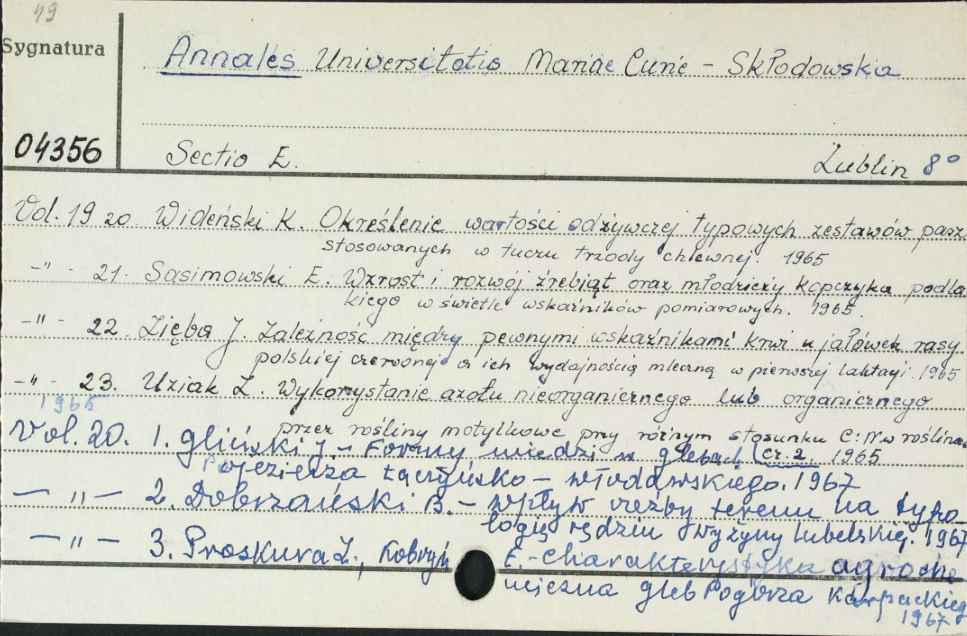 49
Sygnatura
Annales Universitatis Mariae Curie - Skłodowska
04356
Sectio E. Lublin 8°
Vol. 19 20. Wideński K. Określenie wartości odżywczej typowych zestawów pasz
stosowanych w tuczu trzody chlewnej. 1965
-"- 21. Sasimowski E. Wzrost i rozwój źrebiąt oraz młodzieży kopczyka podla
kiego w świetle wskaźników pomiarowych. 1965.
-"- 22. Zięba J. Zależność między pewnymi wskaźnikami krwi u jałówek rasy
polskiej czerwonej a ich wydajnością mleczną w pierwszej laktacji. 1965
-"- 23. Uziak Z. Wykorzystanie azotu nieorganicznego lub organicznego
1965
przez rośliny motylkowe przy różnym stosunku C:N w roślinie
Vol. 20. 1. Gliński J. - Formy miedzi w glebach cz. 2. 1965
Pojezierza Łęczyńsko - włodawskiego. 1967
— " — 2. Dobrzański B. - Wpływ rzeźby terenu na typo
logię rędzin Wyżyny Lubelskiej. 1967
— " — 3. Proskura Z., Kobryń E. - Charakterystyka agroche
miczna gleb Pogórza Karpackieg
1967